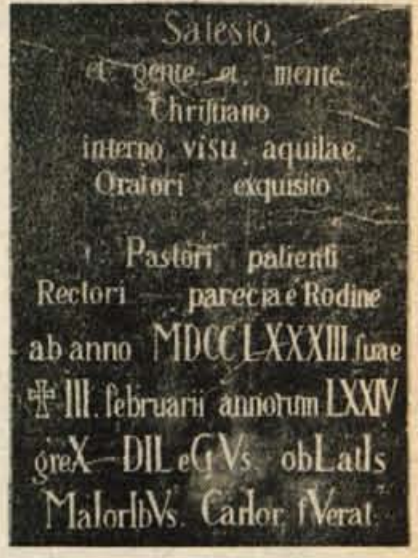 Salesio,
et gente et. mente.
Chriſtiano
interno visu aquilae.
Oratori exquisito
Pastori patienti
Rectori parecia e Rodine
ab anno MDCCLXXXIII ſuae
✠ III. februarii annorum LXXIV
greX DILeGVs. obLatIs
MaIorIbVs. CarIor, fVerat.